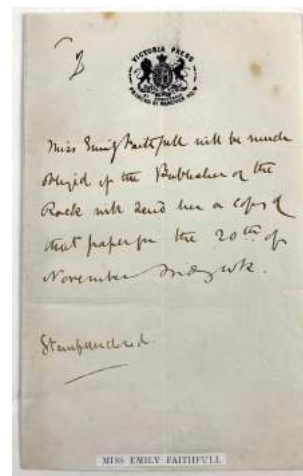 VICTORIA PRESS
Miss Emily Faithfull will be much
obliged if the Publisher of the
Rock will send her a copy of
that paper for the 20th of
November
Stamp enclosed.
MISS EMILY FAITHFULL